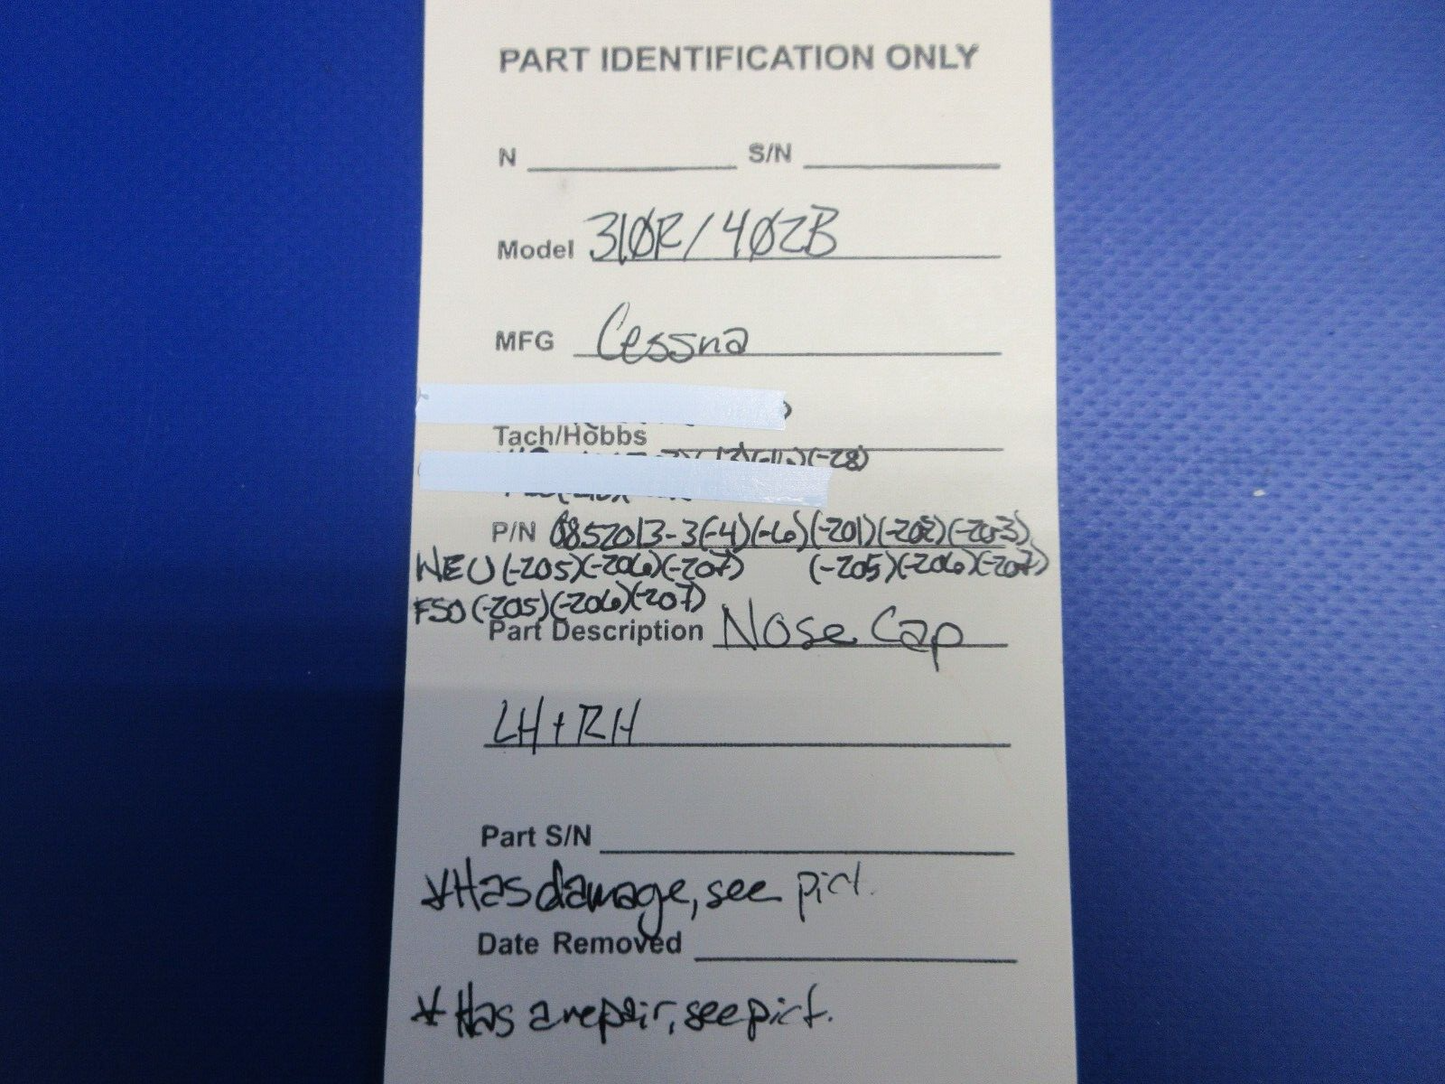 PART IDENTIFICATION ONLY
N S/N
Model 310R/402B
MFG Cessna
Tach/Hobbs
(-28)
P/N 0852013-3(-4)(-6)(-201)(-202)(-203)
NEU(-205)(-206)(-207) (-205)(-206)(-207)
FSO(-205)(-206)(-207)
Part Description Nose Cap
LH+RH
Part S/N
*Has damage, see pict.
Date Removed
* Has a repair, see pict.